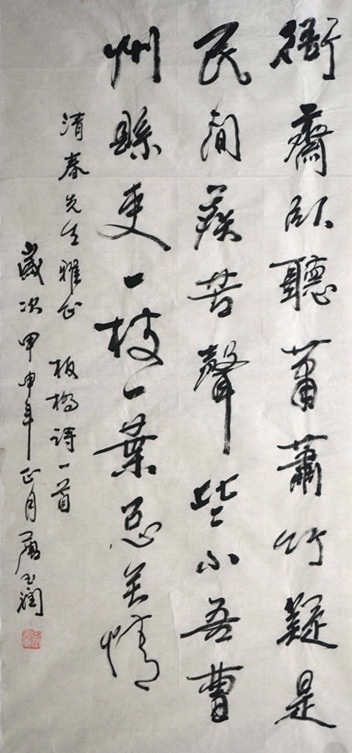 衙齋臥聽蕭蕭竹疑是
民间疾苦聲些小吾曹
州縣吏一枝一葉总关情
清春先生雅正 板橋诗一首
歲次甲申年正月 玉润